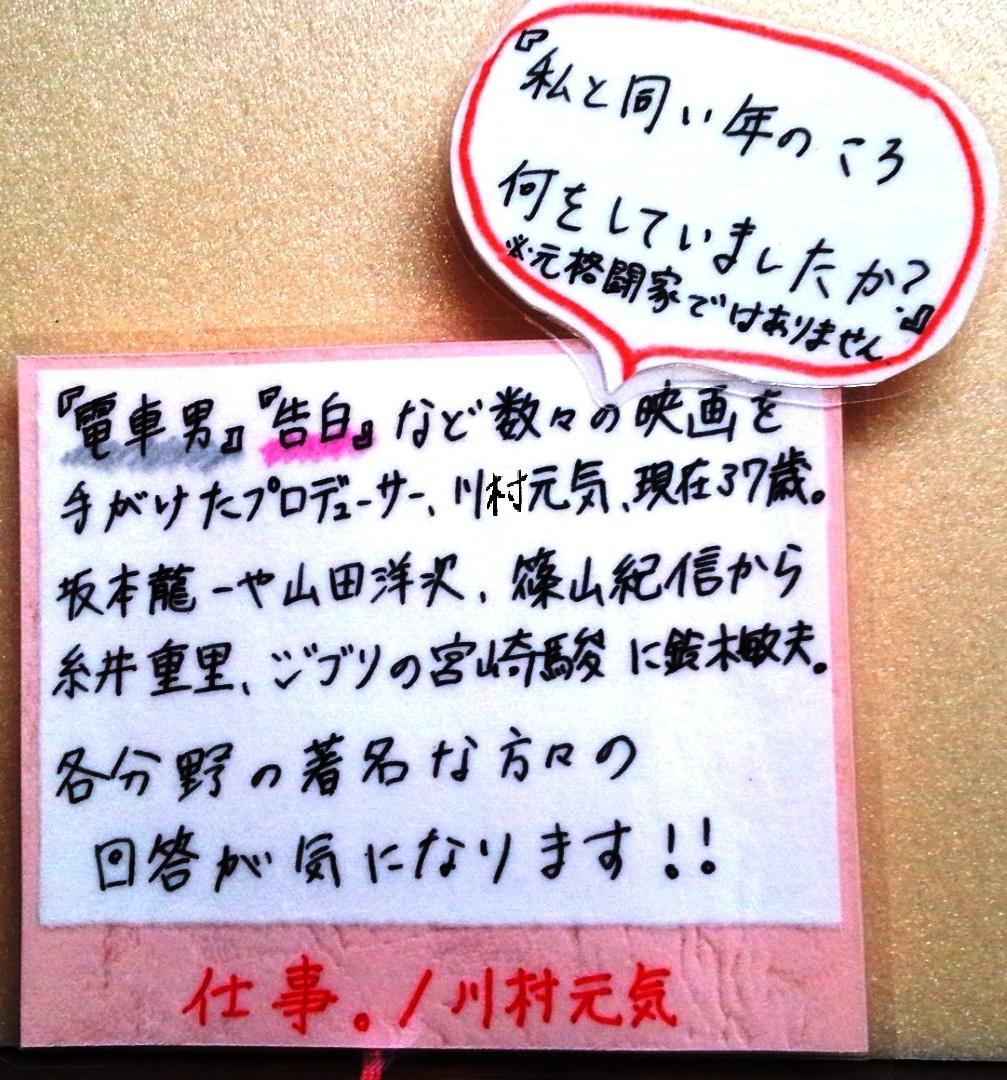 『私と同い年のころ
何をしていましたか?』
※元格闘家ではありません。
『電車男』『告白』など数々の映画を
手がけたプロデューサー、川村元気、現在37歳。
坂本龍一や山田洋次、篠山紀信から
糸井重里、ジブリの宮崎駿に鈴木敏夫。
各分野の著名な方々の
回答が気になります!!
仕事。/川村元気